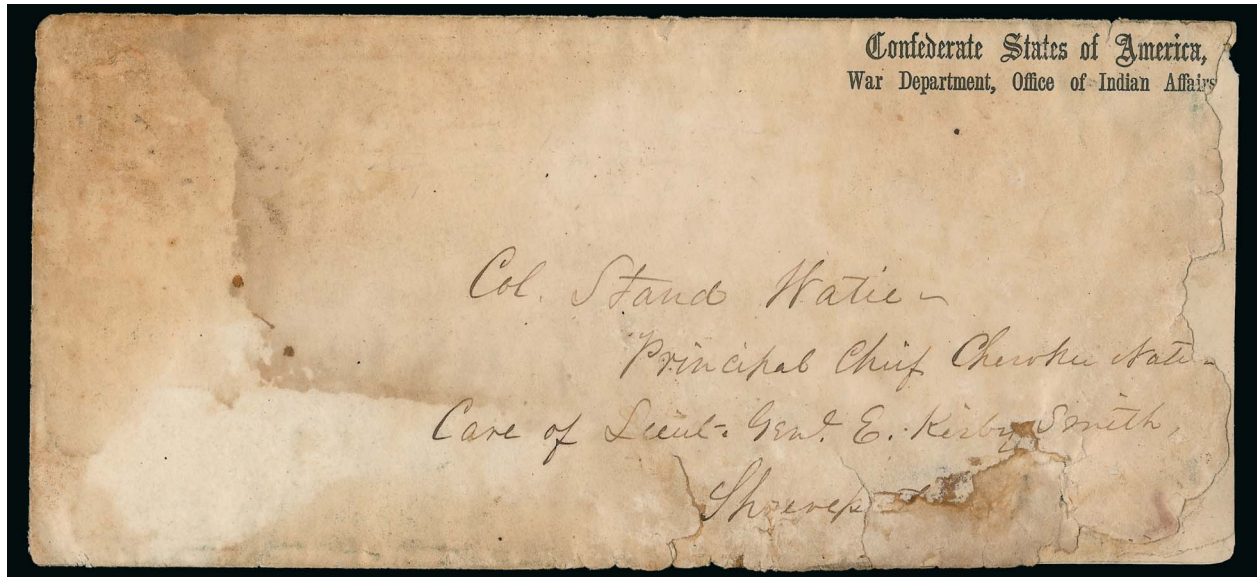 Confederate States of America,
War Department, Office of Indian Affairs
Col. Stand Watie -
Principal Chief Cherokee Nati-
Care of Lieut. Genl. E. Kirby Smith,
Shrevep